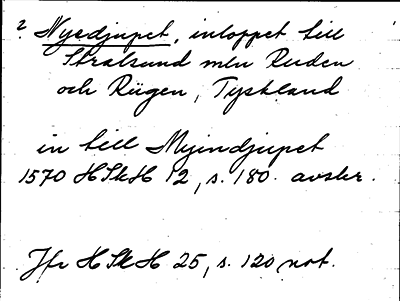 ? Nyedjupet, inloppet till
Stralsund mln Ruden
och Rügen, Tyskland
in till Myindjupet
1570 HSkH 12, s. 180. avskr.
Jfr HSkH 25, s. 120 not.